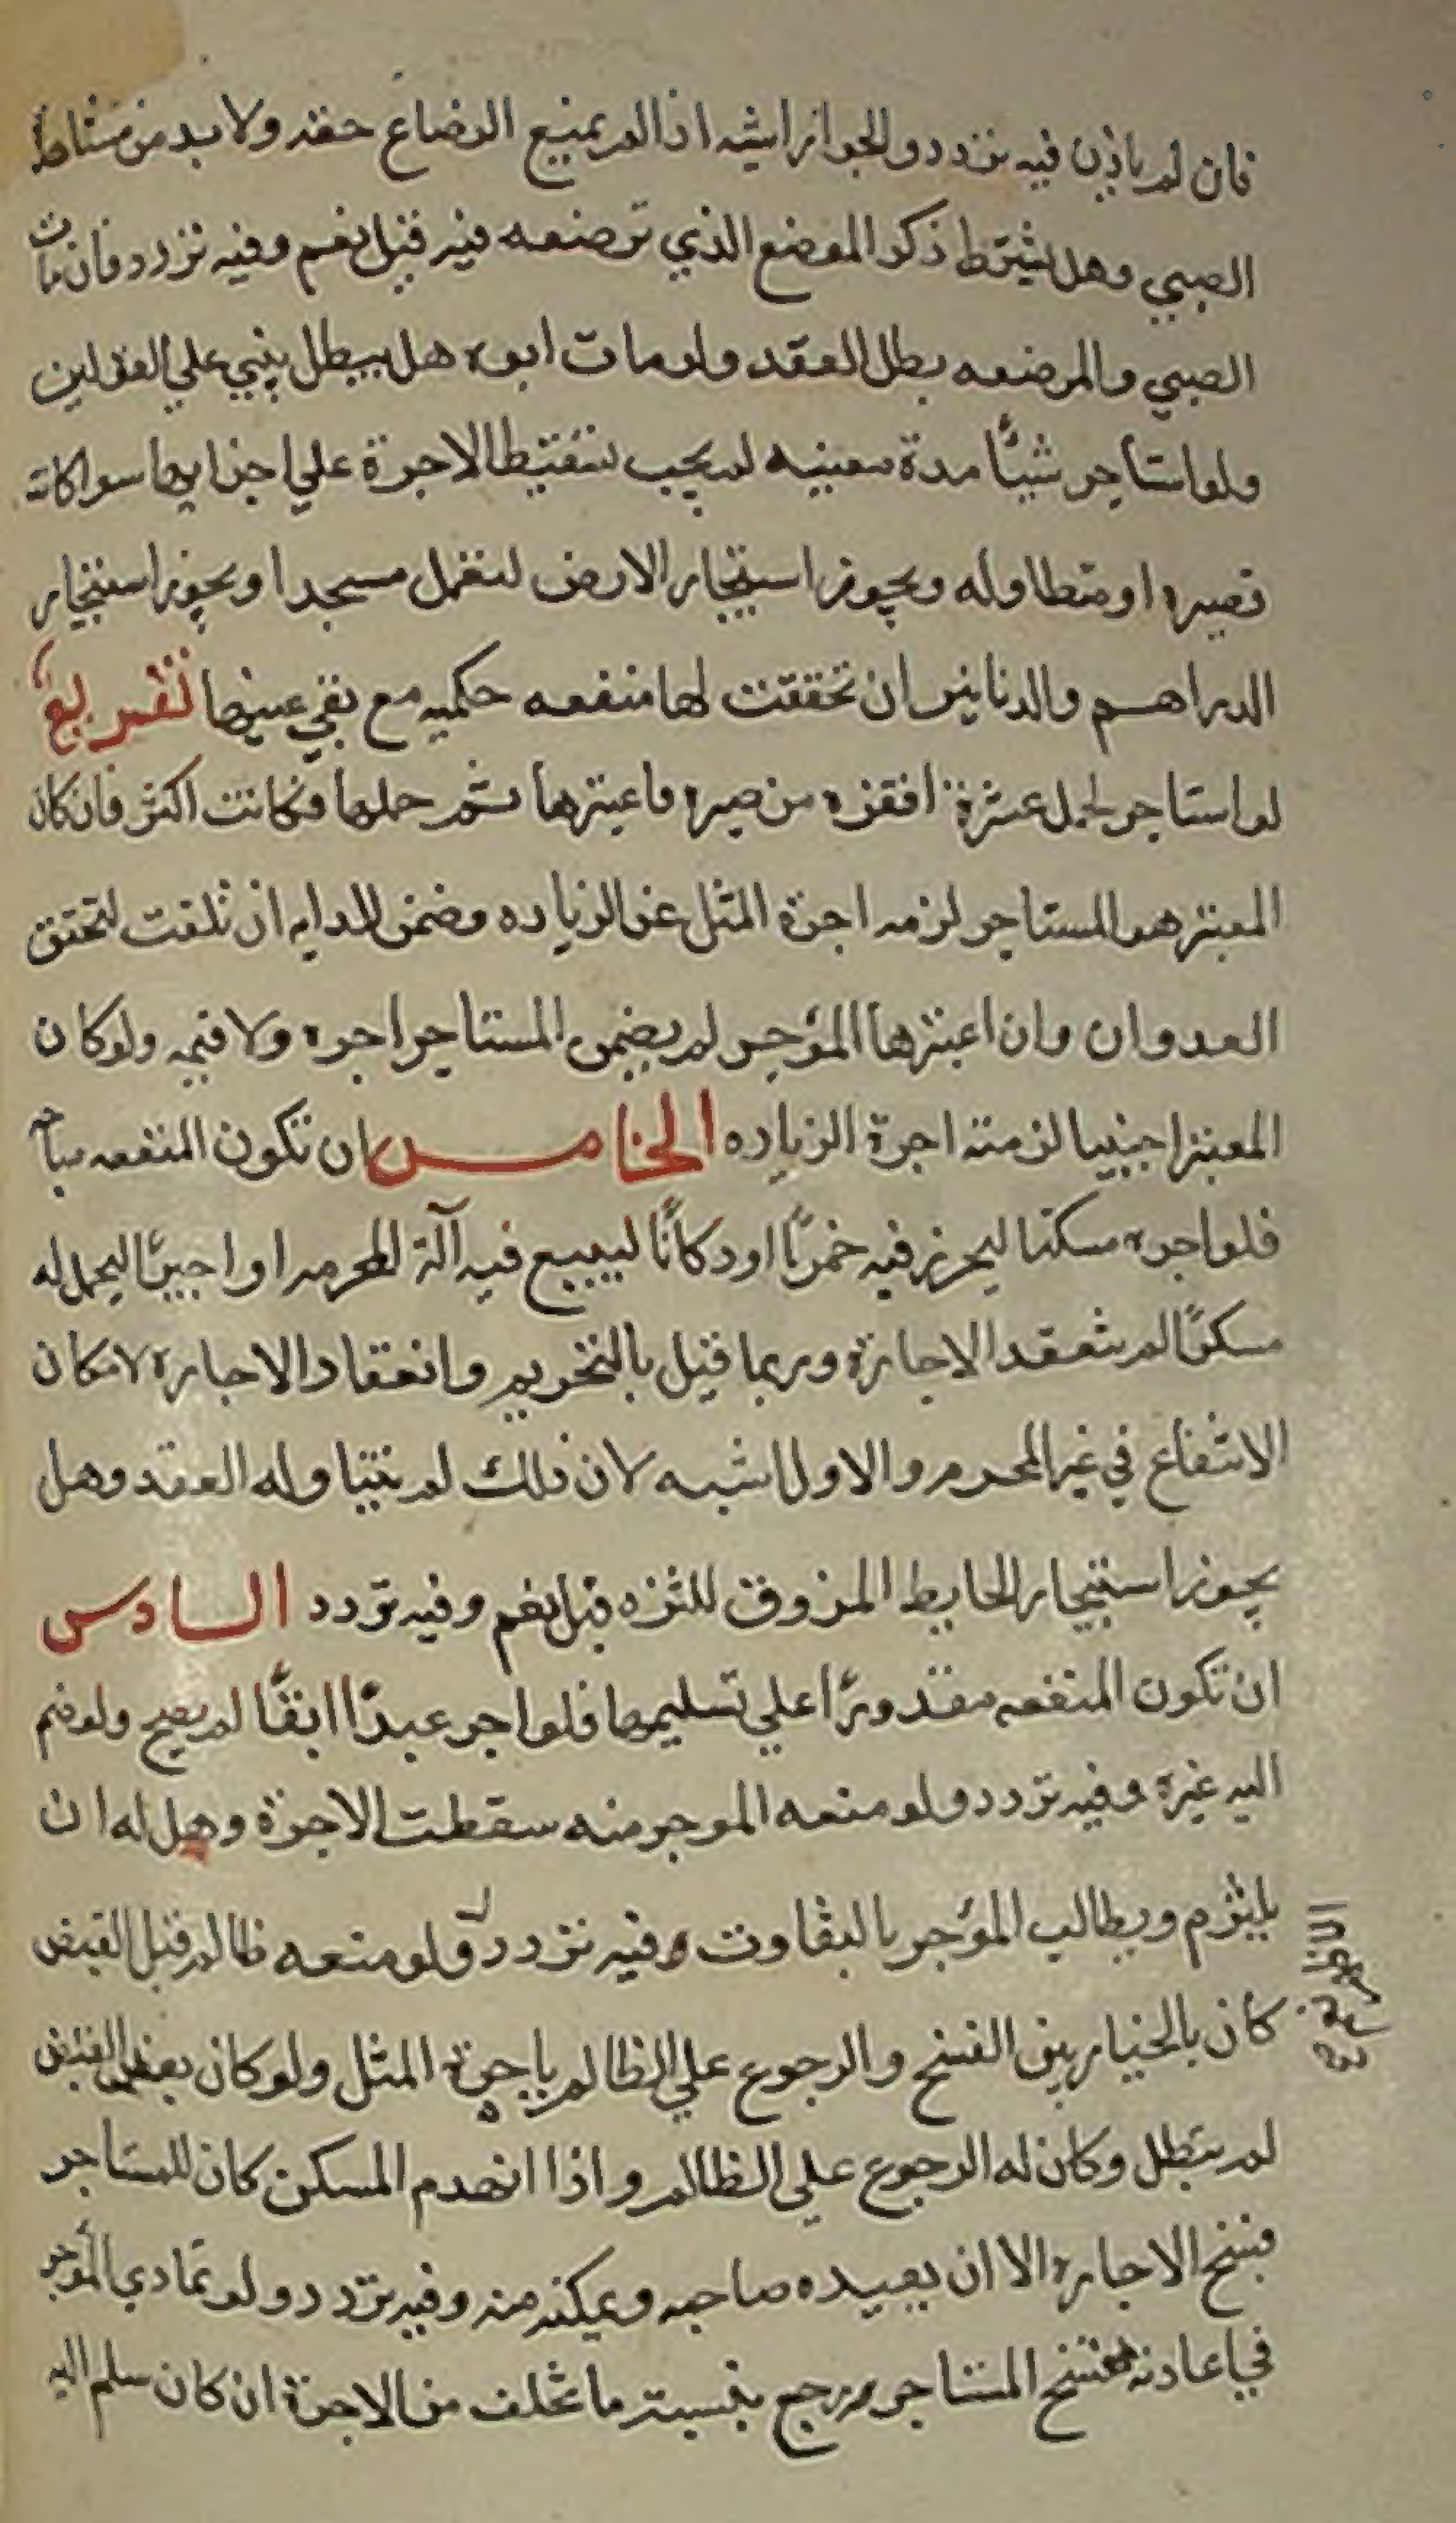 فان لم ياذن فيه تردد والجواز اشبه اذا لم يمنع الرضاع حقه ولا بد من مشاهدة
الصبي وهل يشترط ذكر الموضع الذي ترضعه فيه قيل نعم وفيه تردد فان مات
الصبي والمرضعه بطل العقد ولو مات ابوه هل يبطل يبني علي القولين
ولو استاجر شيئًا مدة معينه لم يجب تقسيط الاجرة علي اجزايها سوا كانت
قصيره او متطاوله ويجوز استيجار الارض لتعمل مسجدا ويجوز استيجار
الدراهم والدنانير ان تحققت لها منفعه حكميه مع بقي عينها تفريع
لو استاجر لحمل عشرة اقفزه من صبره فاعتبرها ثم حملها فكانت اكثر فان كان
المعتبر هو المستاجر لزمه اجرة المثل عن الزياده وضمن الدابه ان تلفت لتحقق
العدوان وان اعتبرها المؤجر لم يضمن المستاجر اجره ولا قيمه ولو كان
المعتبر اجنبيا لزمته اجرة الزياده الخامس ان تكون المنفعه مباحه
فلو اجره مسكنا ليحرز فيه خمرًا او دكانًا ليبيع فيه آلة المحرمه او اجيرًا ليحمل له
مسكرًا لم تنعقد الاجارة وربما قيل بالتحريم وانعقاد الاجارة لامكان
الانتفاع في غير المحرم والاول اشبه لان ذلك لم يتناوله العقد وهل
يجوز استيجار الحايط المزوق للتنزه قيل نعم وفيه تردد السادس
ان تكون المنفعه مقدورًا علي تسليمها فلو اجر عبدًا ابقًا لم يصح ولو ضم
اليه غيره وفيه تردد ولو منعه الموجر منه سقطت الاجرة وهل له ان
يلتزم ويطالب المؤجر بالتفاوت وفيه تردد ولو منعه ظالم قبل القبض
كان بالخيار بين الفسخ والرجوع علي الظالم باجرة المثل ولو كان بعد القبض
لم تبطل وكان له الرجوع علي الظالم واذا انهدم المسكن كان للمستاجر
فسخ الاجارة الا ان يعيده صاحبه ويمكنه منه وفيه تردد ولو تمادي المؤجر
في اعادته فسخ المستاجر ورجع بنسبة ما تخلف من الاجرة ان كان سلم اليه